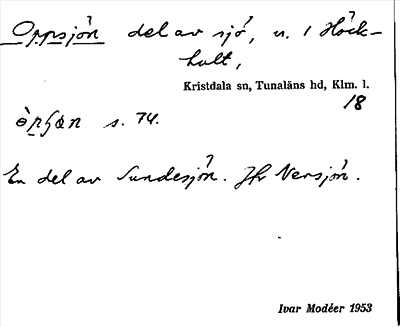 Oppsjön del av sjö, n. i Höck-
hult,
Kristdala sn, Tunaläns hd, Klm. l.
18
s. 74.
En del av Sundesjön. Jfr Nersjön.
Ivar Modéer 1953